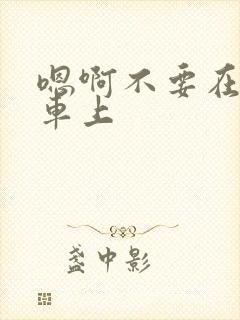 嗯啊不要在
车上
盏中影